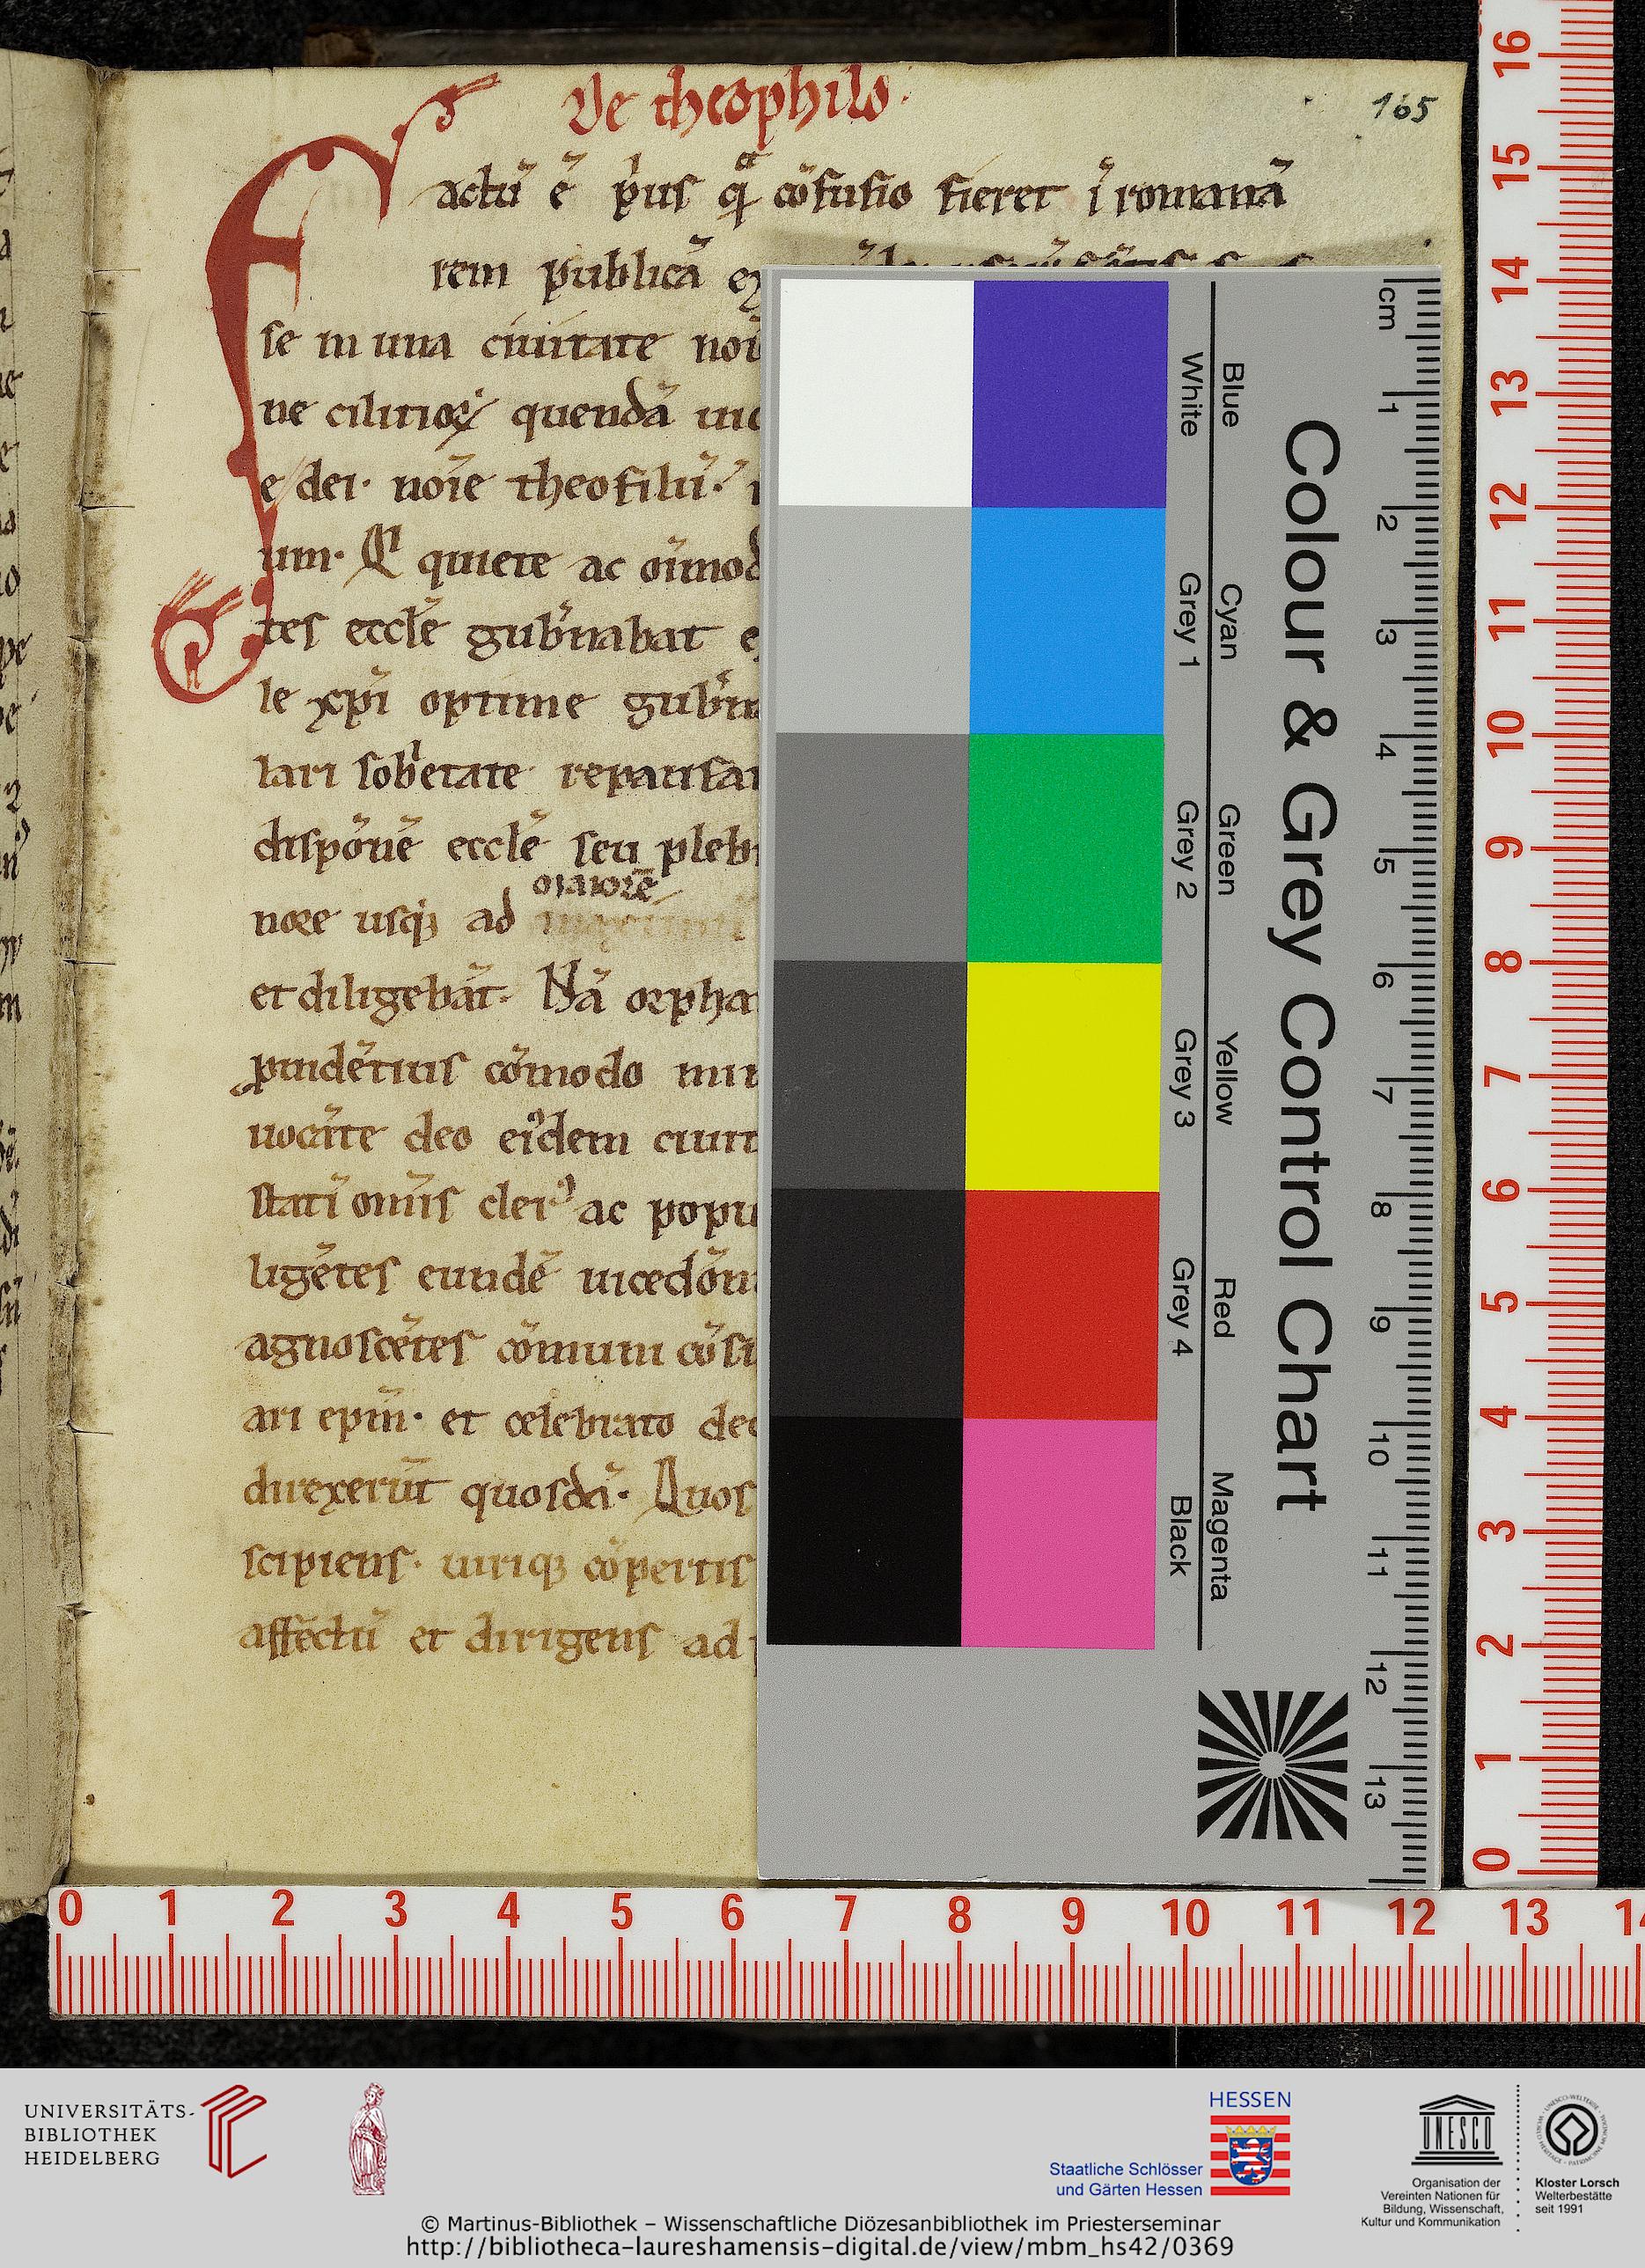 De theophilo.
165
Factū ē p̄us qͣ cōfusio fieret ī romanā
rem publicā
se in una ciuitate
ne cilicioꝝ quendā
e dei. noīe theofilū.
um. Q quiete ac oīmod
tes eccłe gub̄nabat
le xp̄i optime gub̄n
lari sob̄etate repausa
dispōnē eccłe seu pleb
maiorē
nore usqꝫ ad
et diligebāt. Nā orpha
ꝓuidētius cōmodo
uocāte deo eīdem ciuit
statī om̄is cler᾽ ac popu
ligētes eundē uicedōm
agnoscētes cōmuni cōsi
ari epm̄. et celebrato dec
direxerūt quosdā. Quos
scipiens. uirisqꝫ cōpertis
affectū et dirigens ad
Colour & Grey Control Chart
Blue
White
Cyan
Grey 1
Green
Grey 2
Yellow
Grey 3
Red
Grey 4
Magenta
Black
cm 1 2 3 4 5 6 7 8 9 10 11 12 13
16 15 14 13 12 11 10 9 8 7 6 5 4 3 2 1 0
0 1 2 3 4 5 6 7 8 9 10 11 12 13 14
UNIVERSITÄTS-
BIBLIOTHEK
HEIDELBERG
HESSEN
Staatliche Schlösser
und Gärten Hessen
UNESCO
Organisation der
Vereinten Nationen für
Bildung, Wissenschaft,
Kultur und Kommunikation
Kloster Lorsch
Welterbestätte
seit 1991
© Martinus-Bibliothek – Wissenschaftliche Diözesanbibliothek im Priesterseminar
http://bibliotheca-laureshamensis-digital.de/view/mbm_hs42/0369